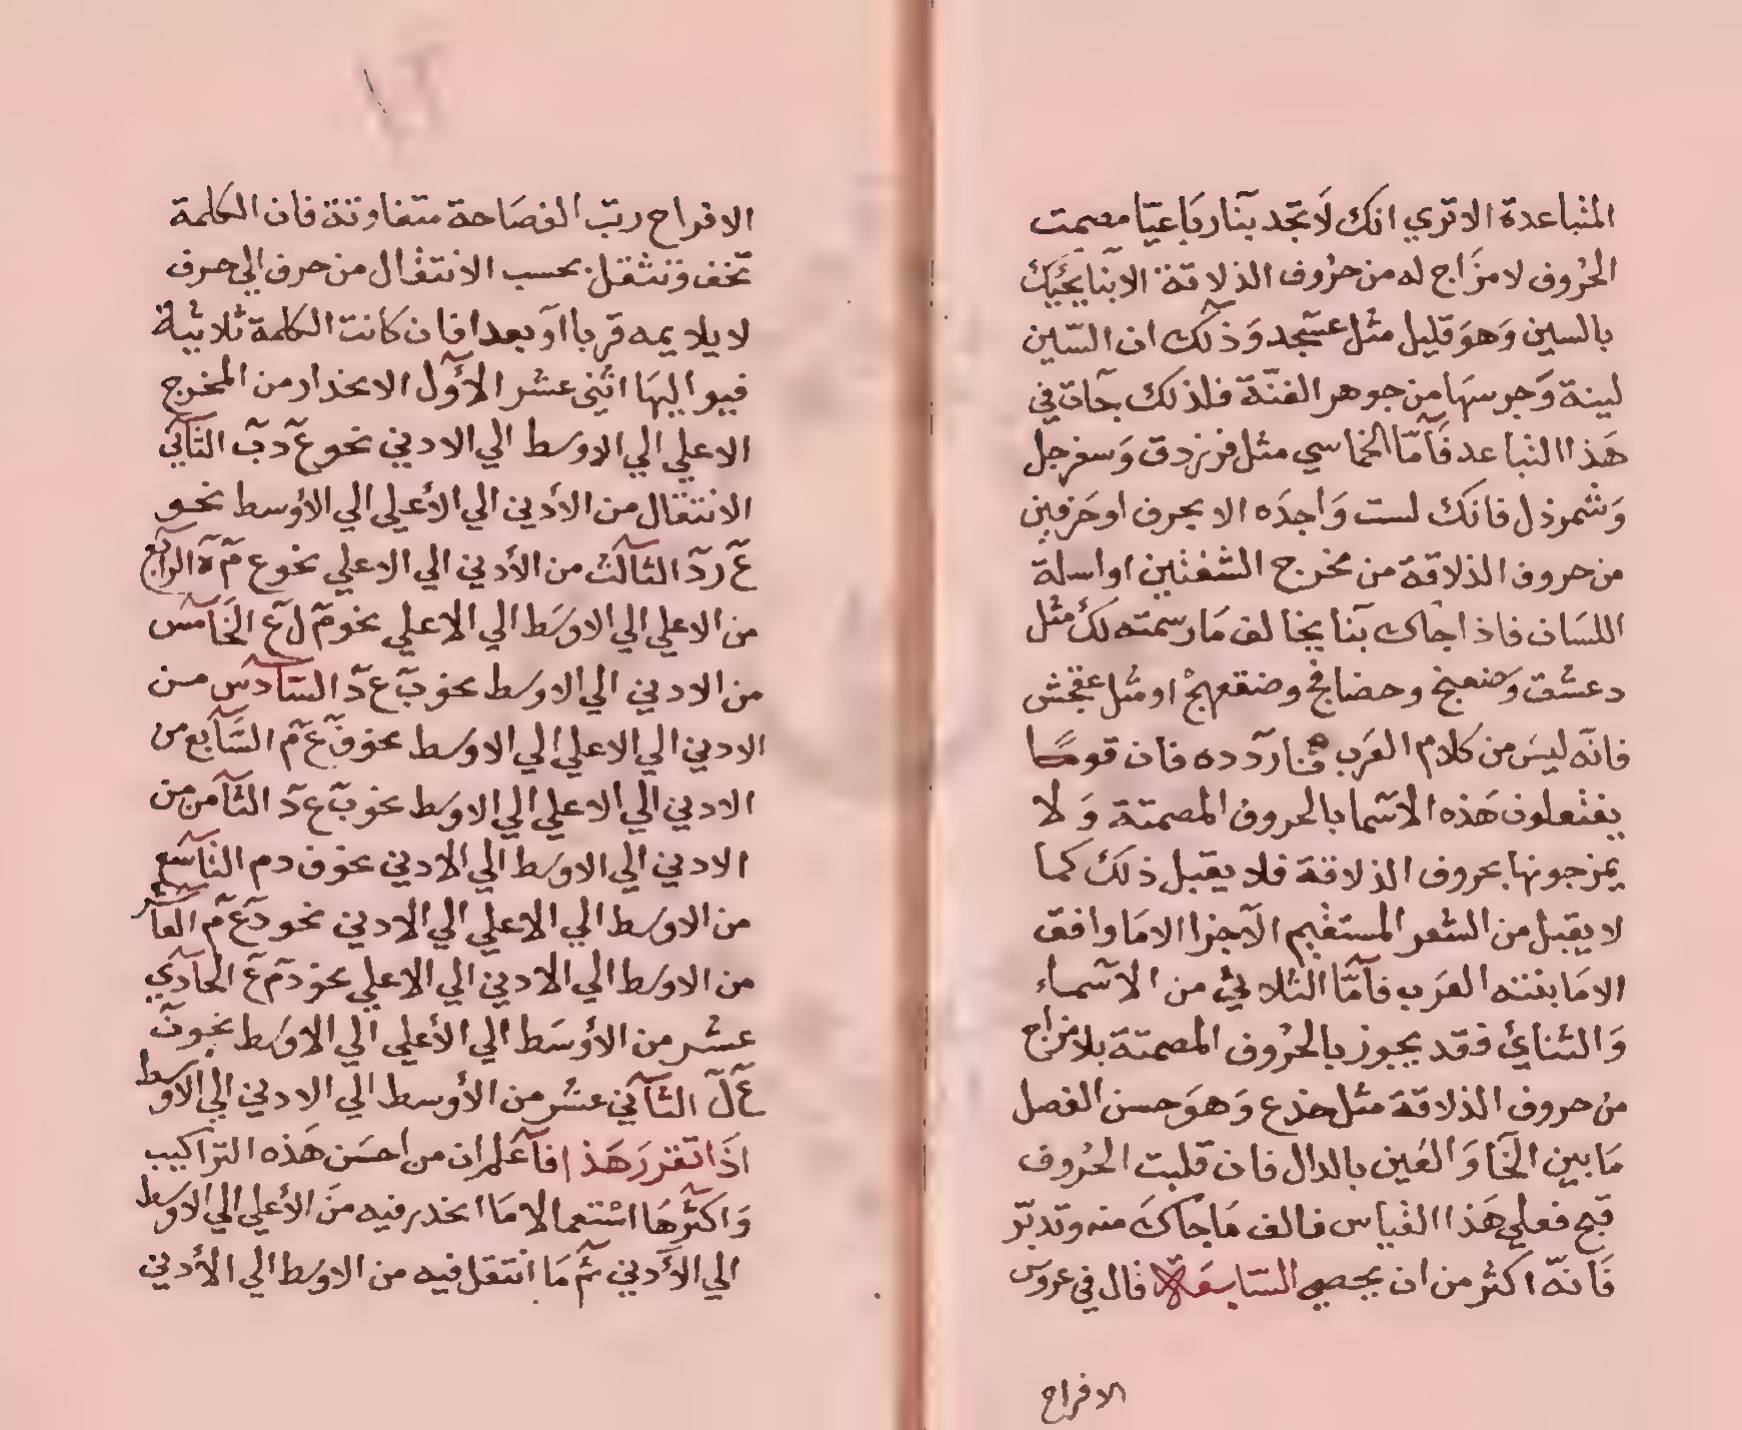 المتباعدة الا تري انك لا تجد بنا رباعيا مصمت
الحروف لا مزاج له من حروف الذلاقة الا بنا يجيك
بالسين وهو قليل مثل عسجد وذلك ان السين
لينة وجرسها من جوهر الغنة فلذلك جات في
هذا التباعد فاما الخماسي مثل فرزدق وسفرجل
وشمرذل فانك لست واجده الا بحرف او حرفين
من حروف الذلاقة من مخرج الشفتين او اسلة
اللسان فاذا جاك بنا يخالف ما رسمته لك مثل
دعشق وضعنج وحضافج وضقعهج او مثل عقجش
فانه ليس من كلام العرب فاردده فان قوما
يفتعلون هذه الاسما بالحروف المصمتة ولا
يمزجونها بحروف الذلاقة فلا يقبل ذلك كما
لا يقبل من الشعر المستقيم الاجزا الا ما وافق
الا ما بنته العرب فاما الثلاثي من الاسماء
والثنائي فقد يجوز بالحروف المصمتة بلا مزاج
من حروف الذلاقة مثل خدع وهو حسن الفصل
ما بين الخا والعين بالدال فان قلبت الحروف
قبح فعلي هذا القياس فالف ما جاك منه وتدبر
فانه اكثر من ان يحصي السابعة قال في عروس
الافراح
الافراح رتب الفصاحة متفاوتة فان الكلمة
تخف وتثقل بحسب الانتقال من حرف الي حرف
لا يلايمه قربا او بعدا فان كانت الكلمة ثلاثية
فتراكيبها اثني عشر الاول الانحدار من المخرج
الاعلي الي الاوسط الي الادني نحو ع د ب الثاني
الانتقال من الأدني الي الأعلي الي الاوسط نحو
ع ر د الثالث من الأدني الي الاعلي نحو ع م ه الرابع
من الاعلي الي الاوسط الي الاعلي نحو م ل ع الخامس
من الادني الي الاوسط نحو ب ع د السادس من
الادني الي الاعلي الي الاوسط نحو ف ع م السابع من
الادني الي الاعلي الي الاوسط نحو ب ع د الثامن من
الادني الي الاوسط الي الادني نحو ف د م التاسع
من الاوسط الي الاعلي الي الادني نحو د ع م العاشر
من الاوسط الي الادني الي الاعلي نحو د م ع الحادي
عشر من الأوسط الي الأعلي الي الاوسط نحو ن
ع ل الثاني عشر من الأوسط الي الادني الي الاوسط
اذا تقرر هذا فاعلم ان من احسن هذه التراكيب
واكثرها استعمالا ما انحدر فيه من الأعلي الي الاوسط
الي الأدني ثم ما انتقل فيه من الاوسط الي الأدني